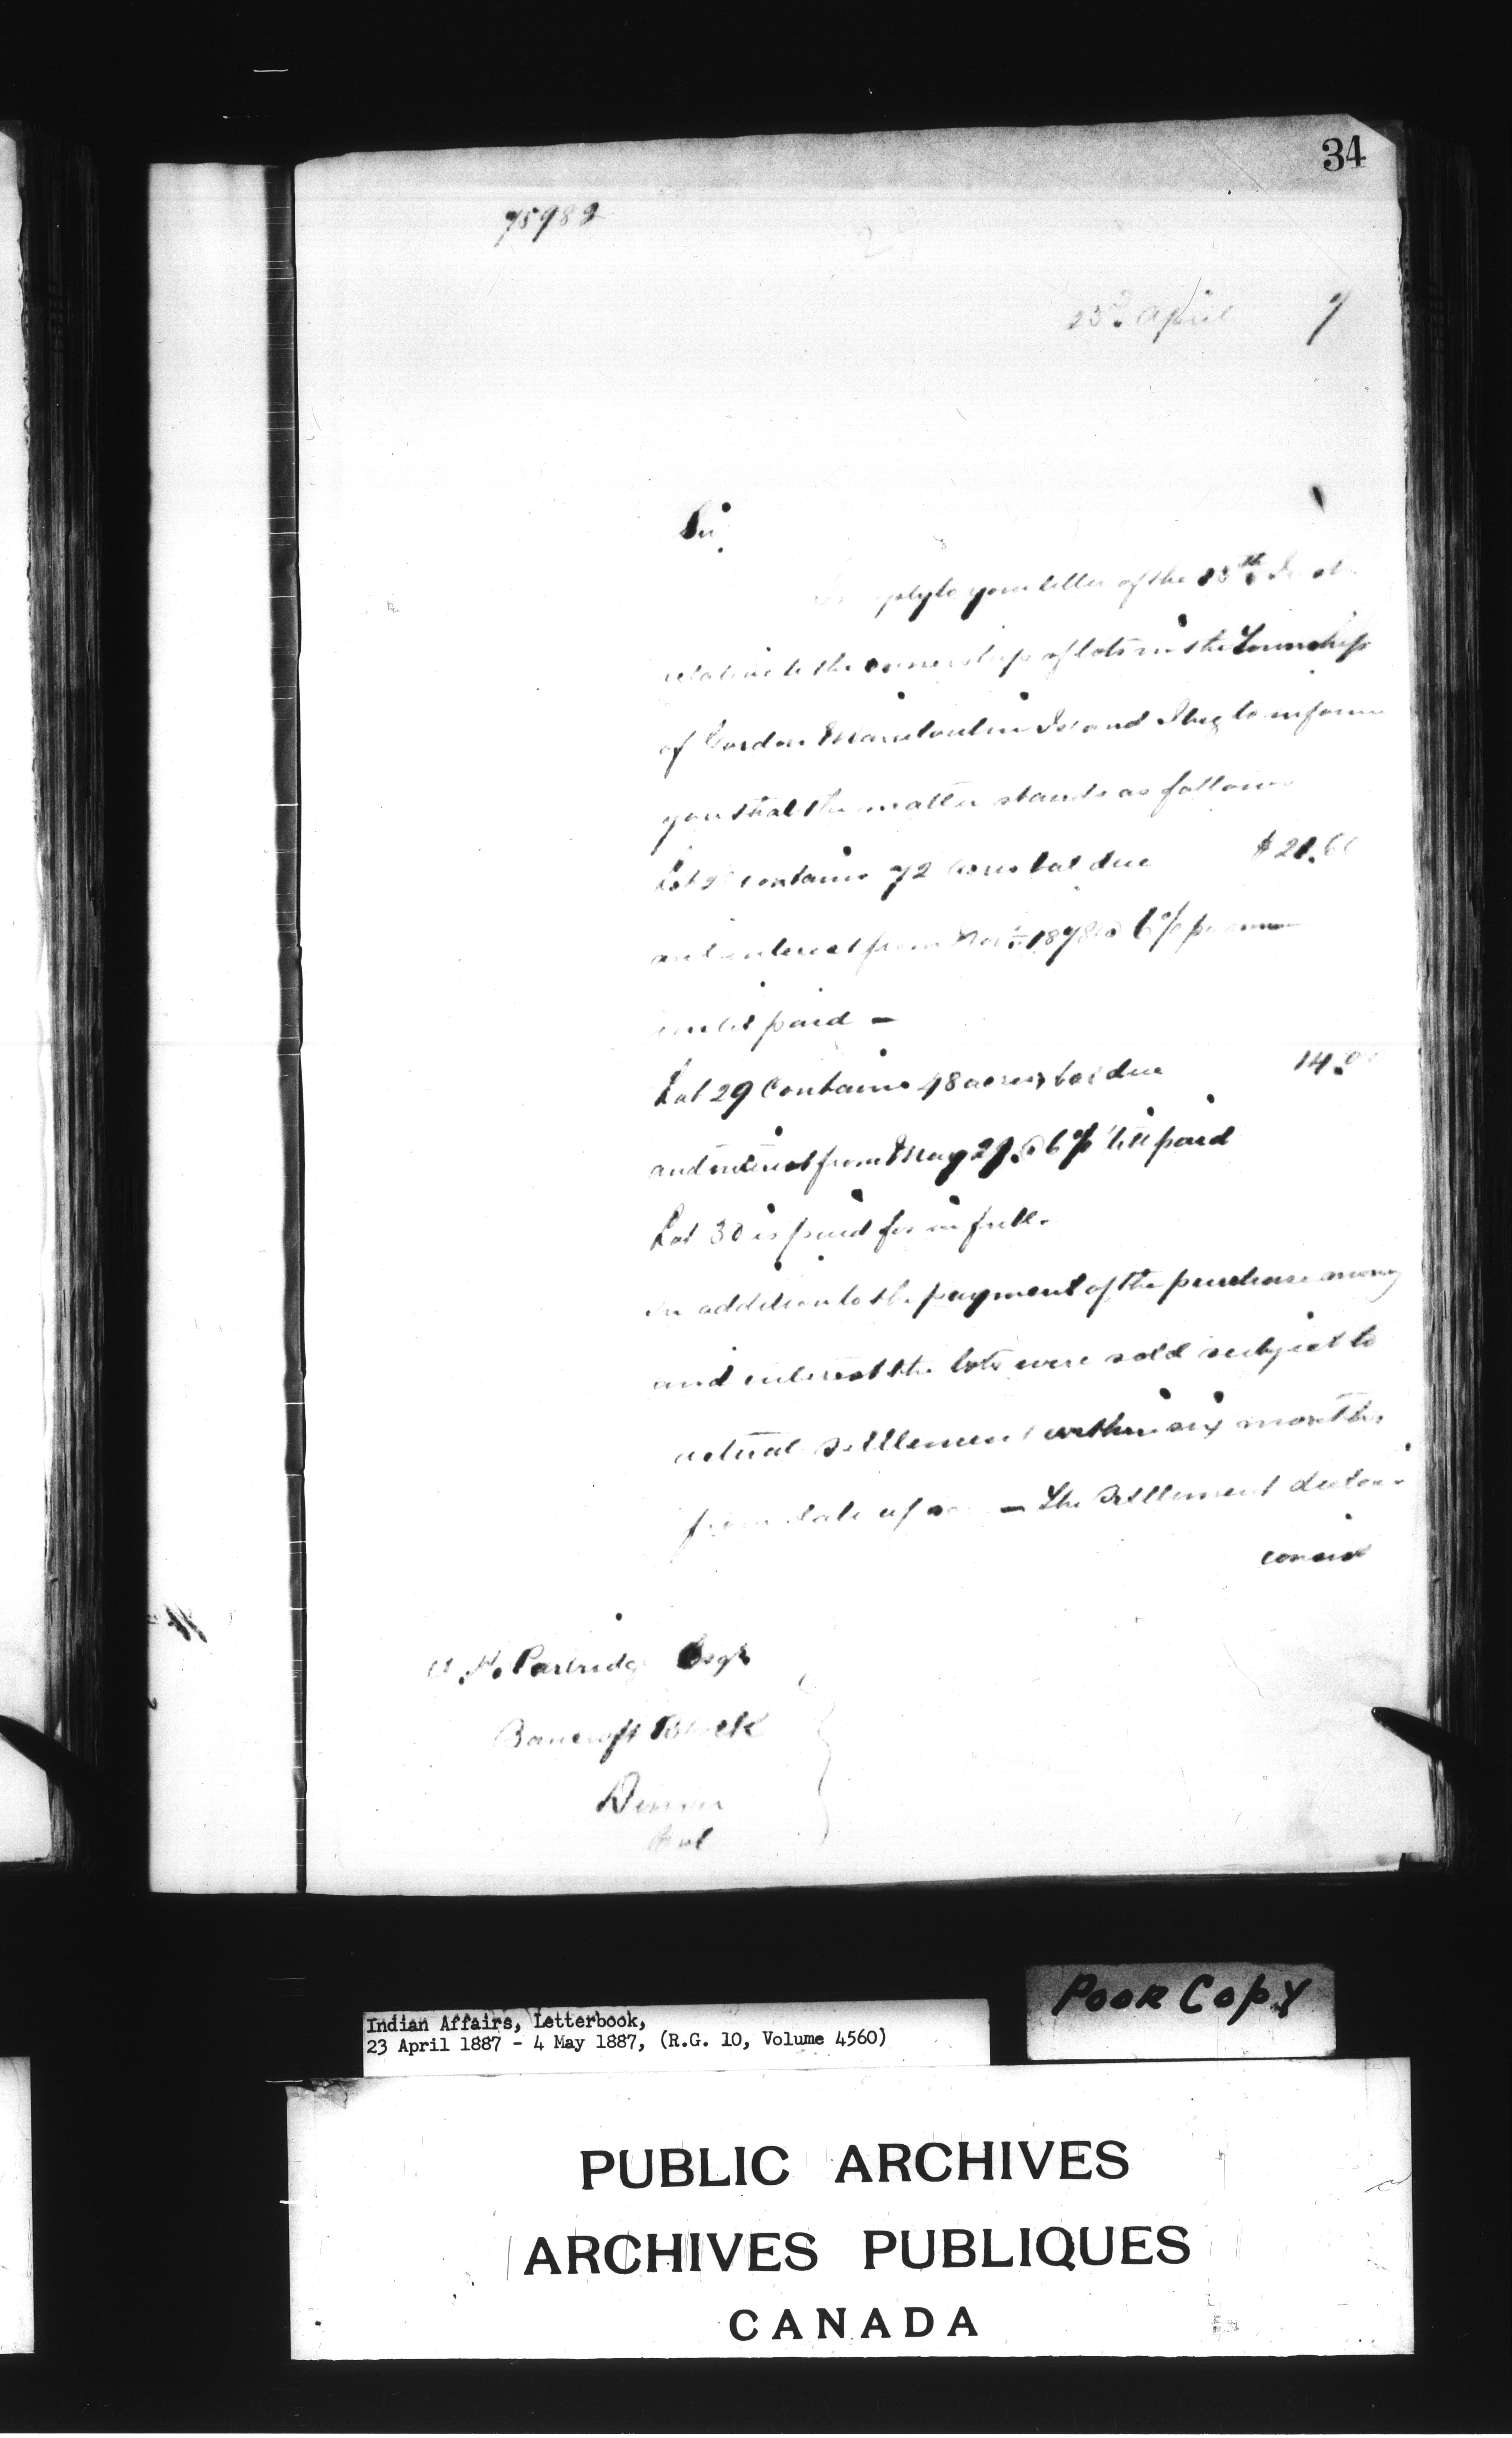 34
75982
29
23rd April 7
Sir,
In reply to your letter of the 13th Inst
relative to the ownership of lots in the Township
of Gordon Manitoulin Island I beg to inform
you that the matter stands as follows
Lot contains 72 acres bal due $21.60
and interest from Nov 1878 @ 6% per annum
until paid —
Lot 29 Contains 48 acres, bal due 14.
and interest from May @ 6% till paid
Lot 30 is paid for in full.
In addition to the payment of the purchase money
and interest the lots were sold subject to
actual settlement within six months
from date of — The Settlement duties
consist
H. Partridge Esqr
Bancroft Block
Denver
Col
Indian Affairs, Letterbook,
23 April 1887 - 4 May 1887, (R.G. 10, Volume 4560)
POOR COPY
PUBLIC ARCHIVES
ARCHIVES PUBLIQUES
CANADA